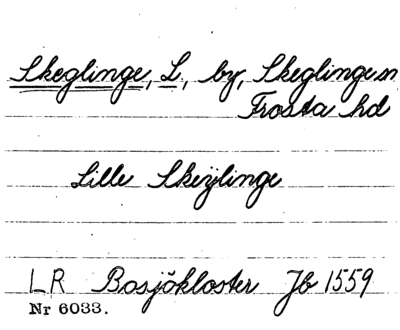 Skeglinge, L, by, Skeglinge sn
Frosta hd
Lille Skeÿlinge
LR Bosjökloster Jb 1559
Nr 6033.